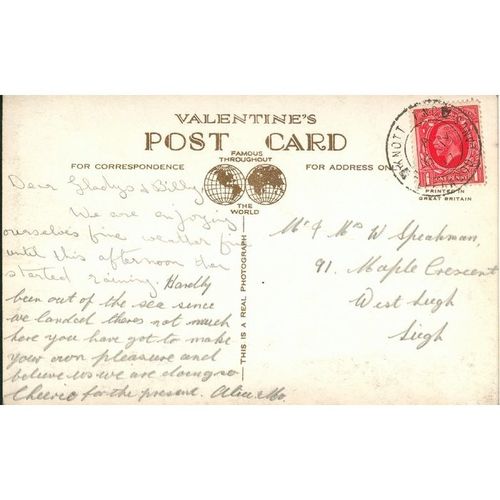 VALENTINE'S
POST CARD
FAMOUS
THROUGHOUT
FOR CORRESPONDENCE
FOR ADDRESS ON
THE WORLD
PRINTED IN
GREAT BRITAIN
KNOTT
THIS IS A REAL PHOTOGRAPH
Dear Gladys & Billy
We are enjoying
ourselves fine weather fine
until this afternoon
started raining. Hardly
been out of the sea since
we landed theres not much
here you have got to make
your own pleasure and
believe us we are doing so
Cheerio for the present.
Mr & Mrs W Speakman,
91. Maple Crescent
West Leigh
Leigh